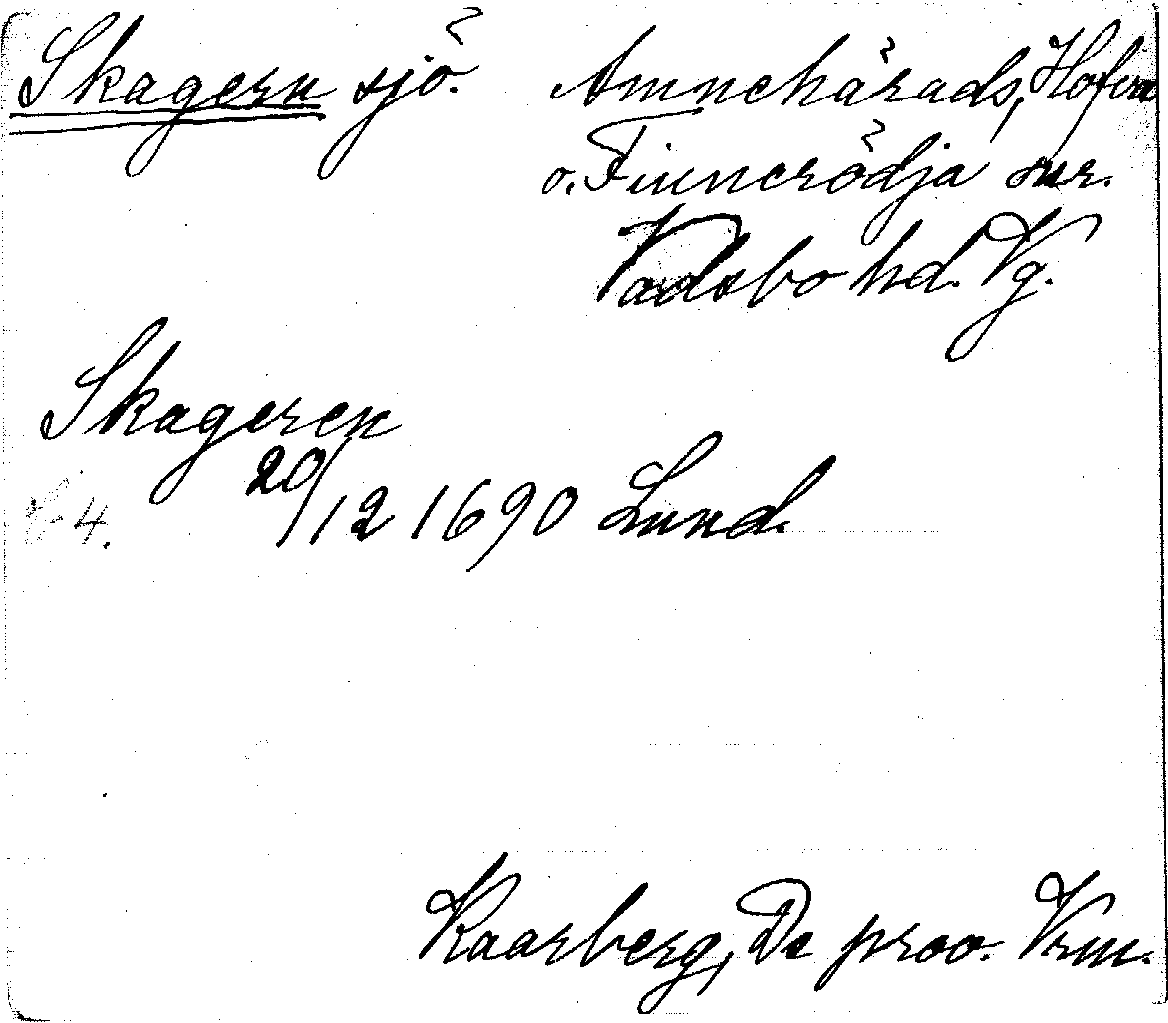 Skagern sjö. Amnehärads, Hofva
o. Finnerödja snr.
Vadsbo hd. Vg.
Skageren
20/12 1690 Lund.
s. 4.
Kaarberg, De prov. Vrm.